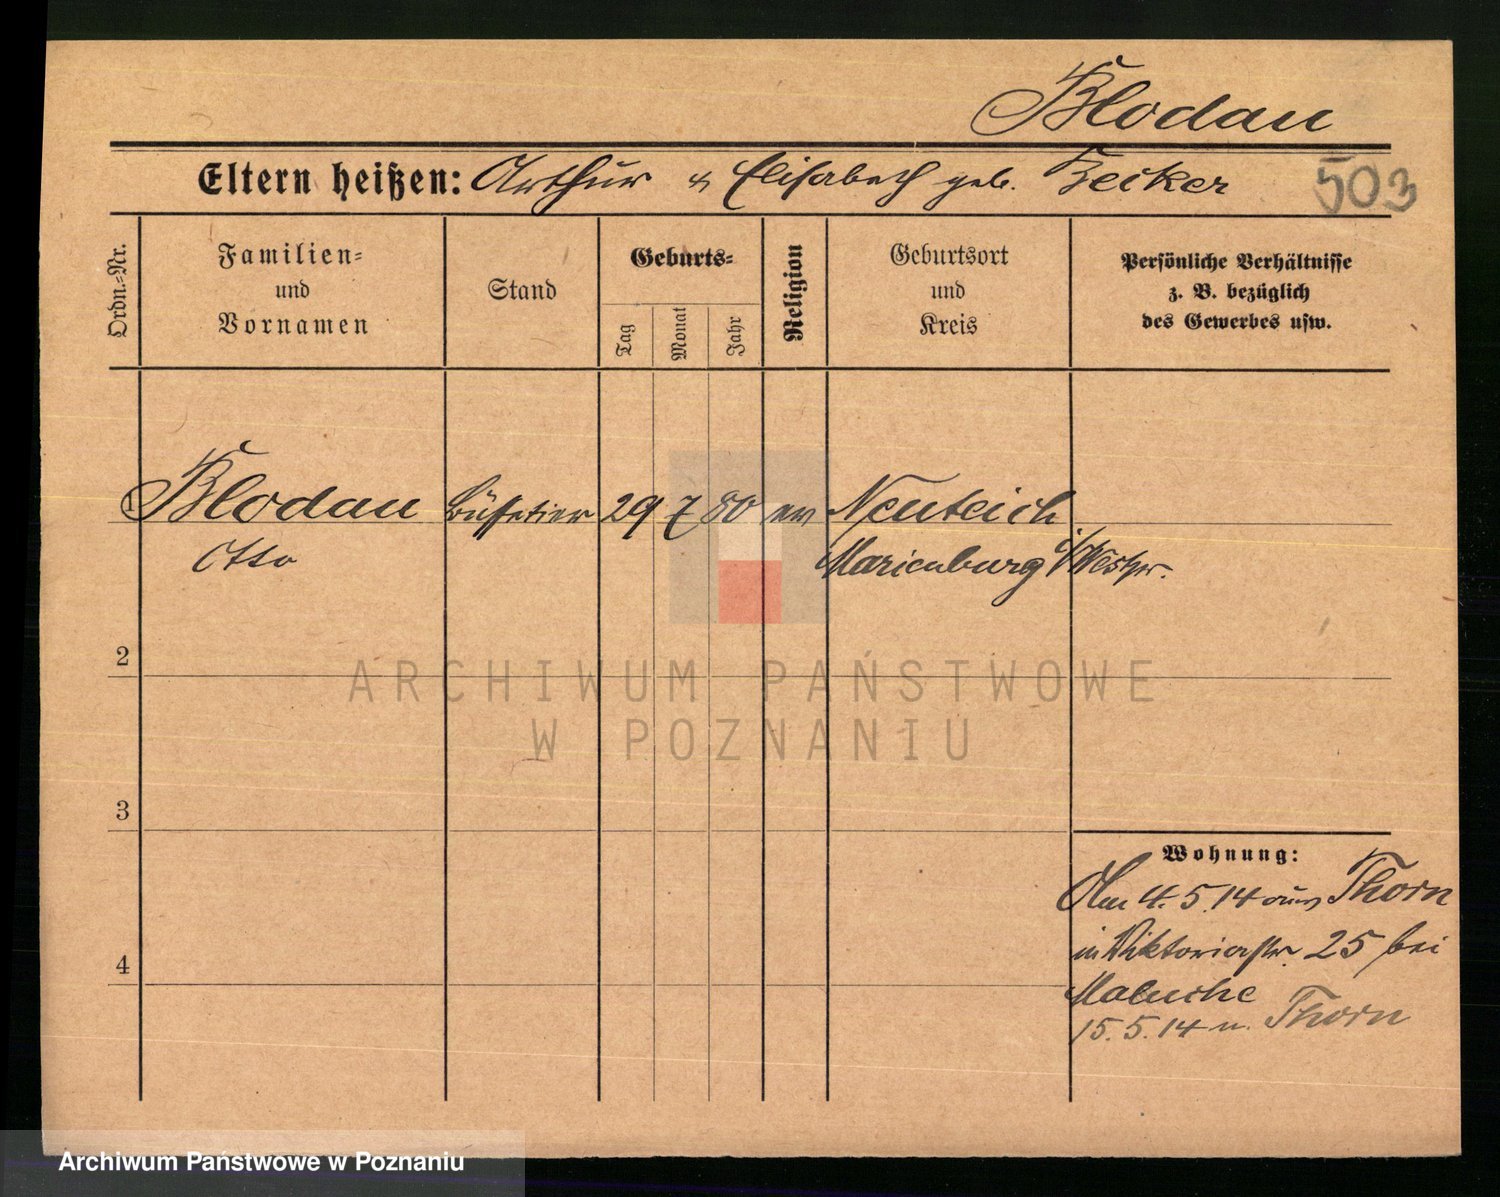 Blodau
Eltern heißen: Arthur & Elisabeth geb. Becker
503
Ordn.-Nr.
Familien-
und
Vornamen
Stand
Geburts-
Tag
Monat
Jahr
Religion
Geburtsort
und
Kreis
Persönliche Verhältnisse
z. B. bezüglich
des Gewerbes usw.
1 Blodau Büffetier 29 7 80 ev Neuteich
Otto Marienburg i/Westpr.
2
3
4
Wohnung:
Am 4.5.14 aus Thorn
in Viktoriastr. 25 bei
15.5.14 n. Thorn
ARCHIWUM PAŃSTWOWE
W POZNANIU
Archiwum Państwowe w Poznaniu